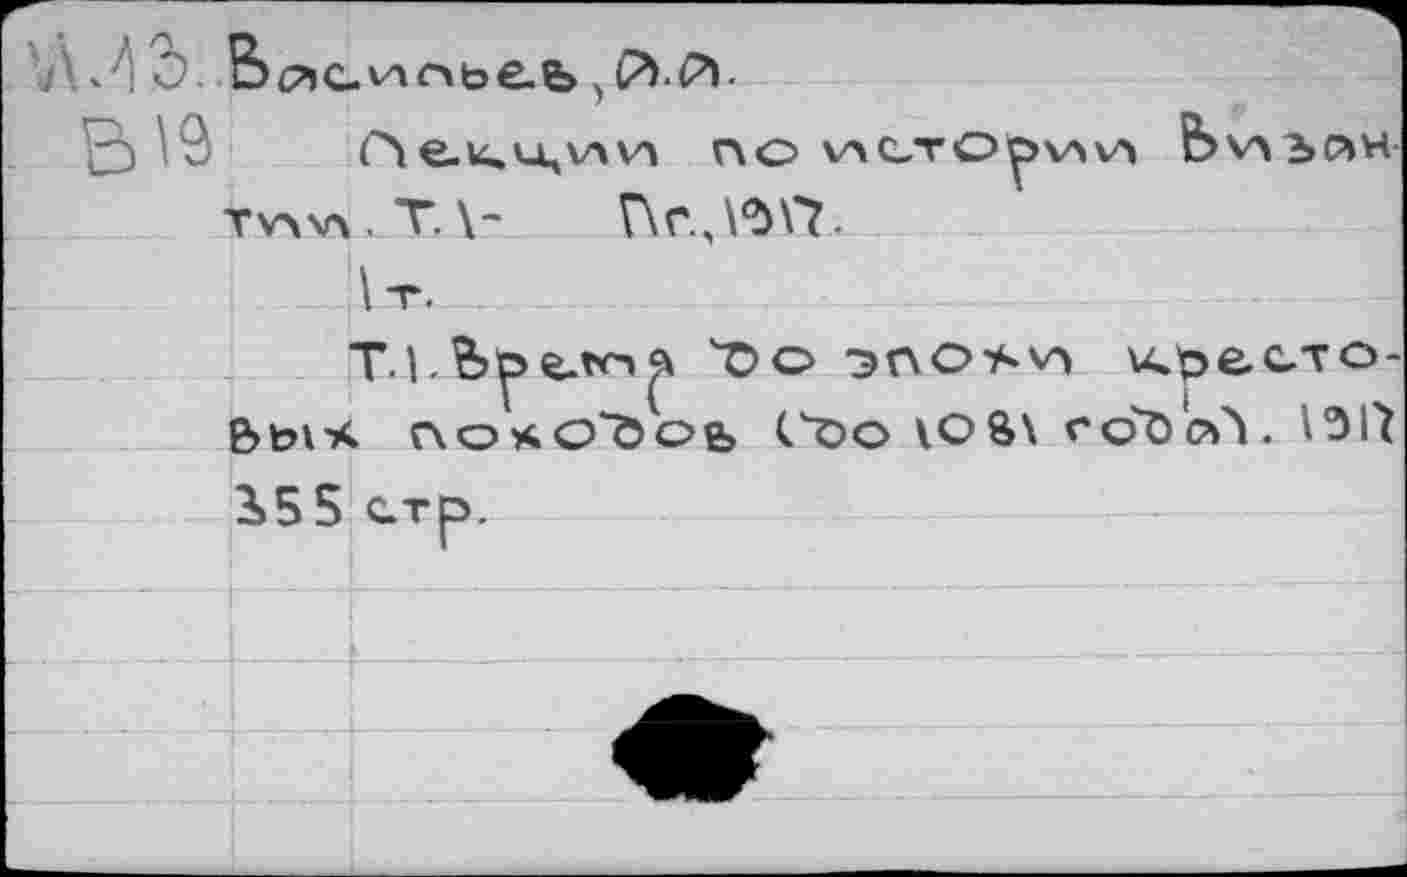 Васильев, А.А.
В19 Лекции по истории Визан-
тии. Т.1- Пг., 1917.
1 т.
Т.1. Время до эпохи кресто-
вых походов (до 1081 года). 1917
355 стр.